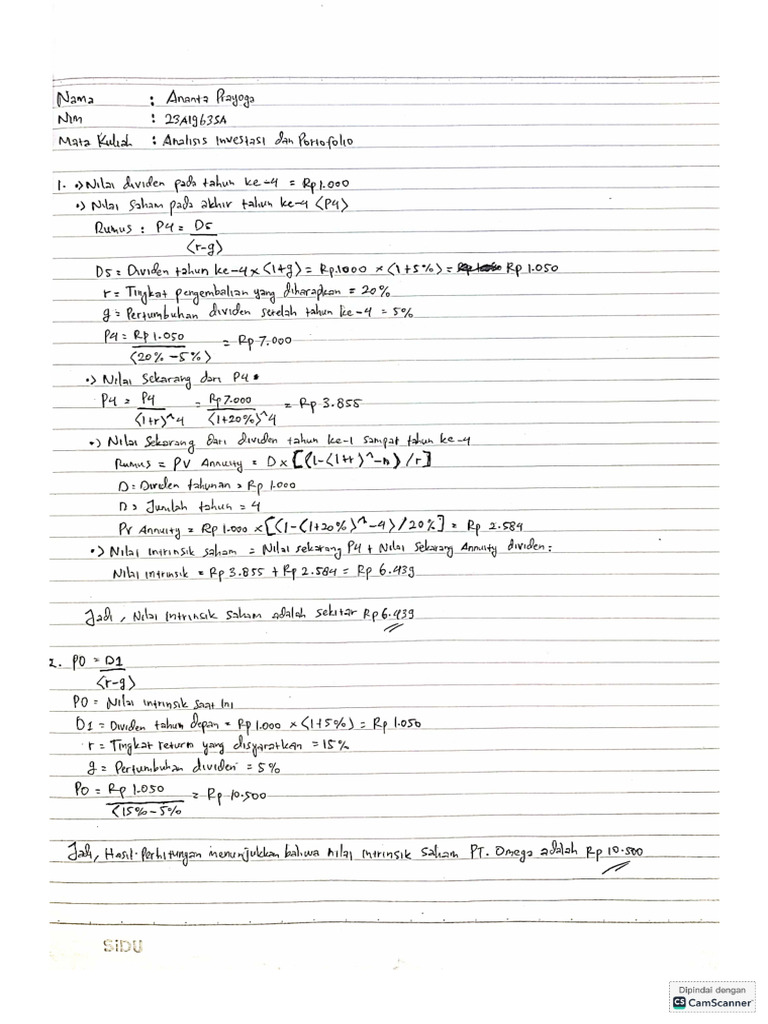 Nama : Ananta Prayoga
Nim : 23A19635A
Mata Kuliah : Analisis Investasi dan Portofolio
1. •> Nilai dividen pada tahun ke-4 = Rp 1.000
•> Nilai Saham pada akhir tahun ke-4 <P4>
Rumus : P4 = D5
<r-g>
D5 = Dividen tahun ke-4 x <1+g> = Rp.1000 x <1+5%> = Rp 1.050
r = Tingkat pengembalian yang diharapkan = 20%
g = Pertumbuhan dividen setelah tahun ke-4 = 5%
P4 = Rp 1.050 = Rp 7.000
<20% -5%>
•> Nilai Sekarang dari P4
P4 = P4 = Rp 7.000 = Rp 3.855
<1+r>^4 <1+20%>^4
•> Nilai Sekarang dari dividen tahun ke-1 sampat tahun ke-4
Rumus = PV Annuity = D x [(1-<1+r>^-n)/r]
D = Dividen tahunan = Rp 1.000
n = Jumlah tahun = 4
PV Annuity = Rp 1.000 x [<1-<1+20%>^-4>/20%] = Rp 2.584
•> Nilai intrinsik saham = Nilai sekarang P4 + Nilai Sekarang Annuity dividen :
Nilai intrinsik = Rp 3.855 + Rp 2.584 = Rp 6.439
Jadi, Nilai intrinsik saham adalah sekitar Rp 6.439
2. P0 = D1
<r-g>
P0 = Nilai intrinsik saat ini
D1 = Dividen tahun depan = Rp 1.000 x <1+5%> = Rp 1.050
r = Tingkat return yang disyaratkan = 15%
g = Pertumbuhan dividen = 5%
P0 = Rp 1.050 = Rp 10.500
<15% - 5%
Jadi, Hasil Perhitungan menunjukkan bahwa nilai intrinsik saham PT. Omega adalah Rp 10.500
SiDU
Dipindai dengan
CS CamScanner